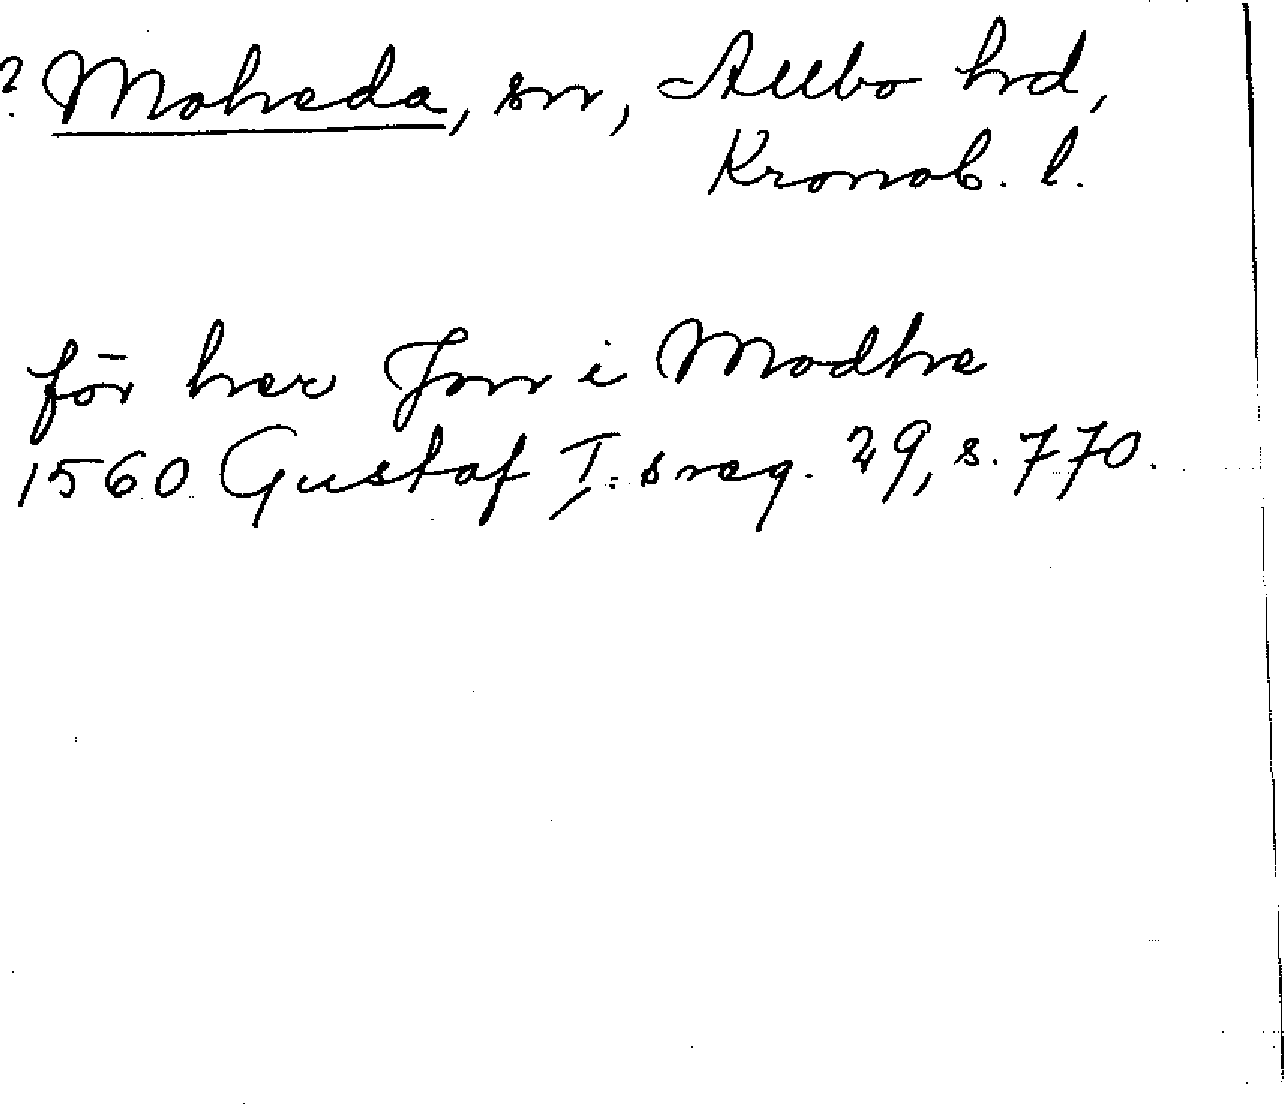 ? Moheda, sn, Allbo hd,
Kronob. l.
för her Jon i Modhe
1560 Gustaf I:s reg. 29, s. 770.